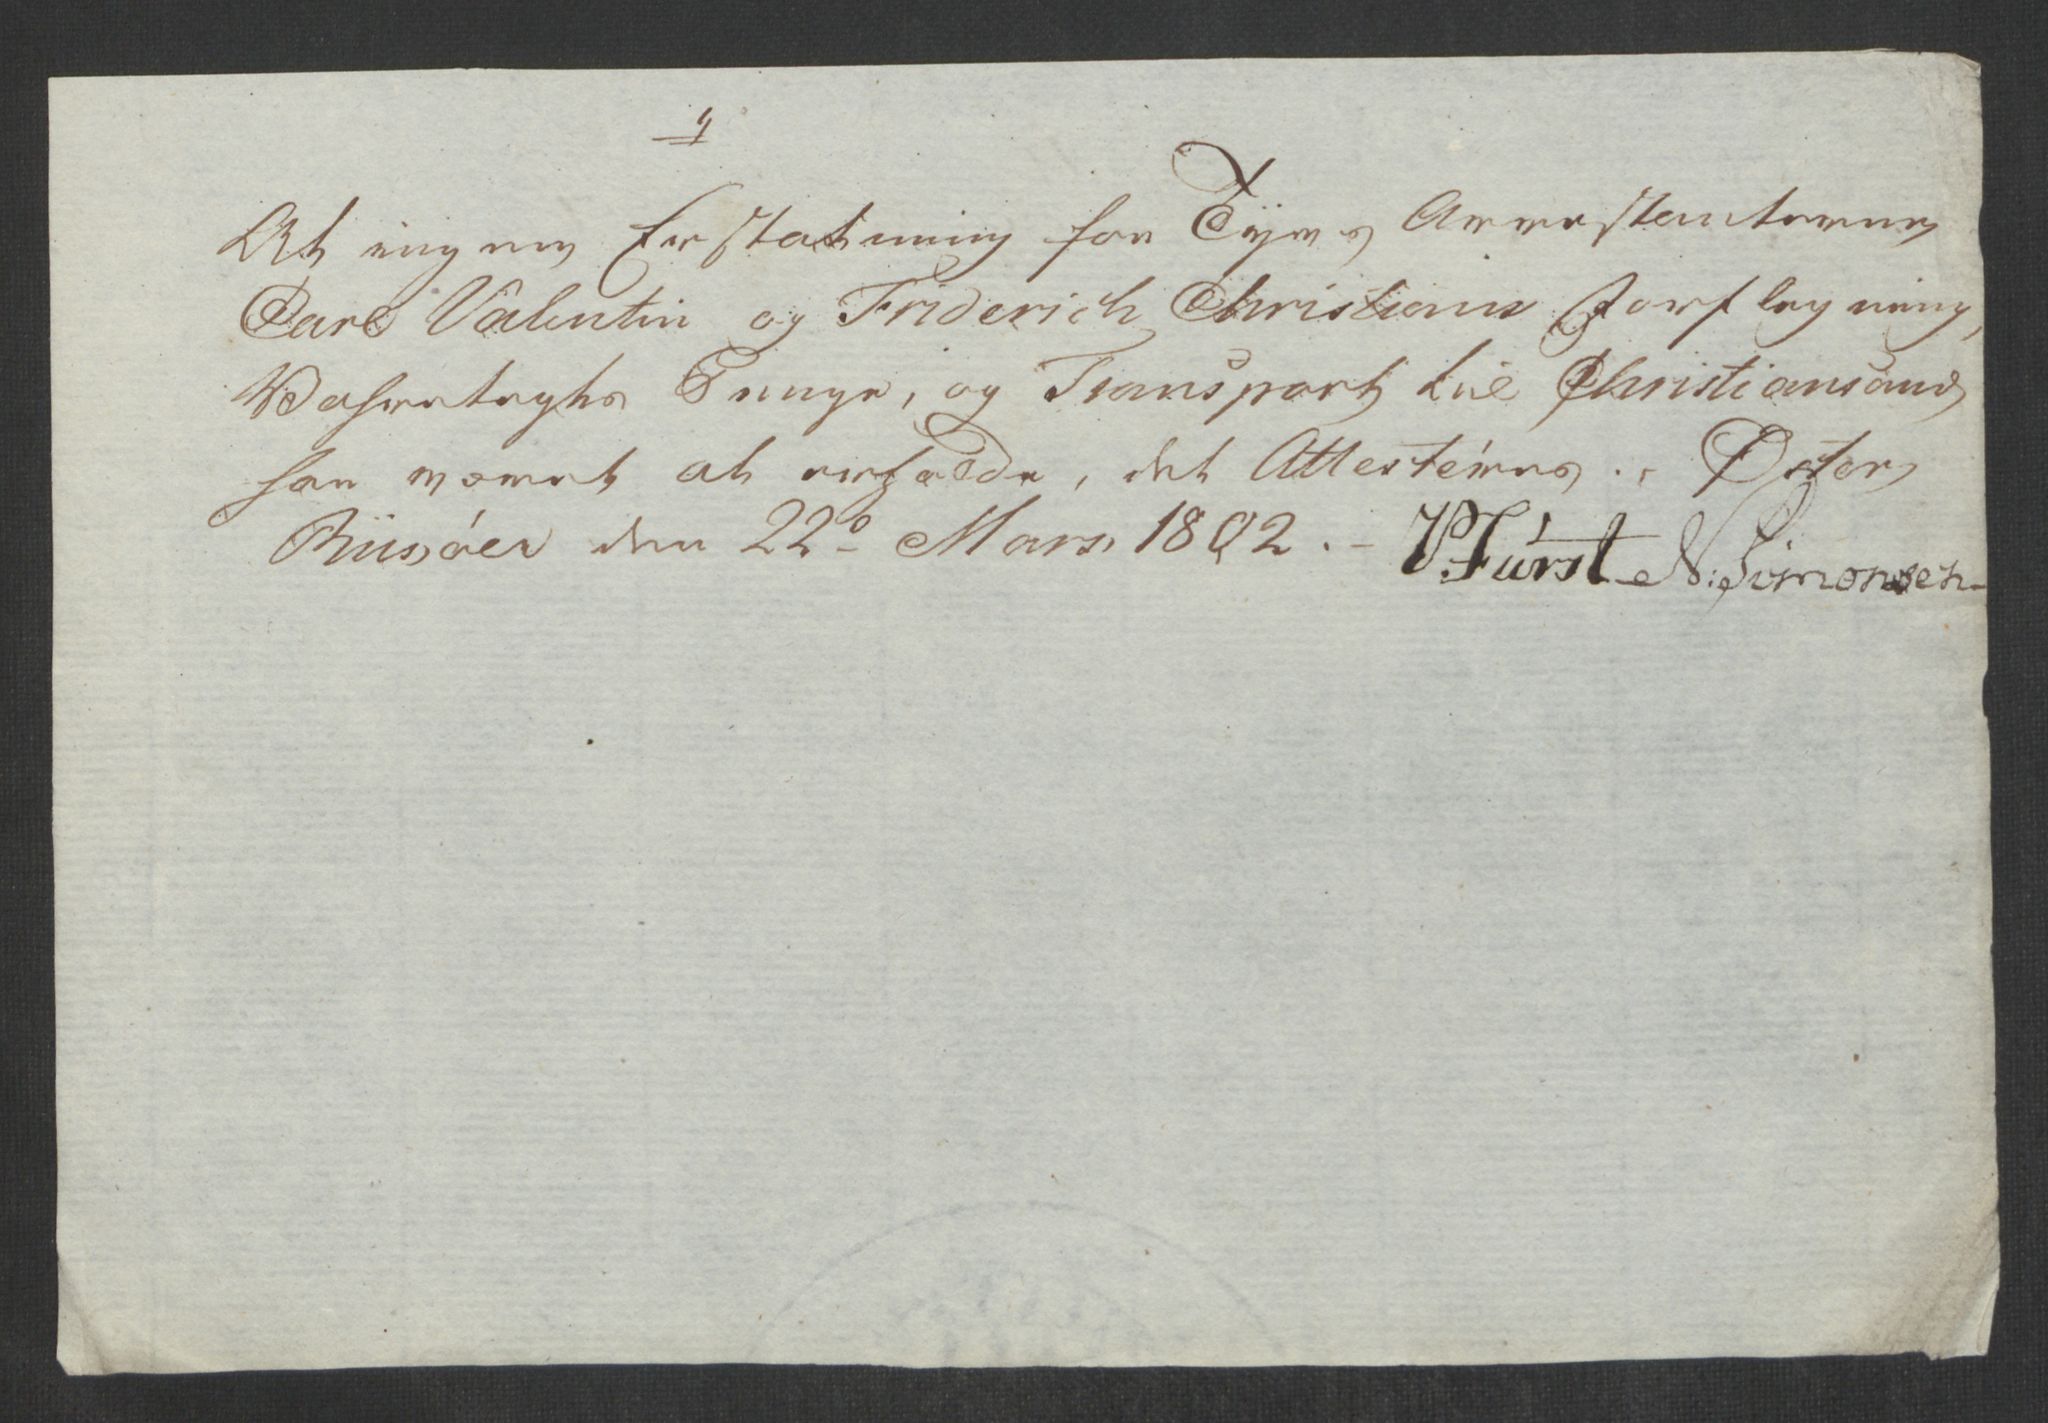 4
At ingen Erstatning for Tyve Arrestanterne
Carl Valentin og Friderich Christians Forflegning,
Vahretegts Penge, og Transport til Christiansand
har været at erholde, det Attesteres. Øster
Riisøer den 22º Mars 1802. - Fürst N: Simonsen